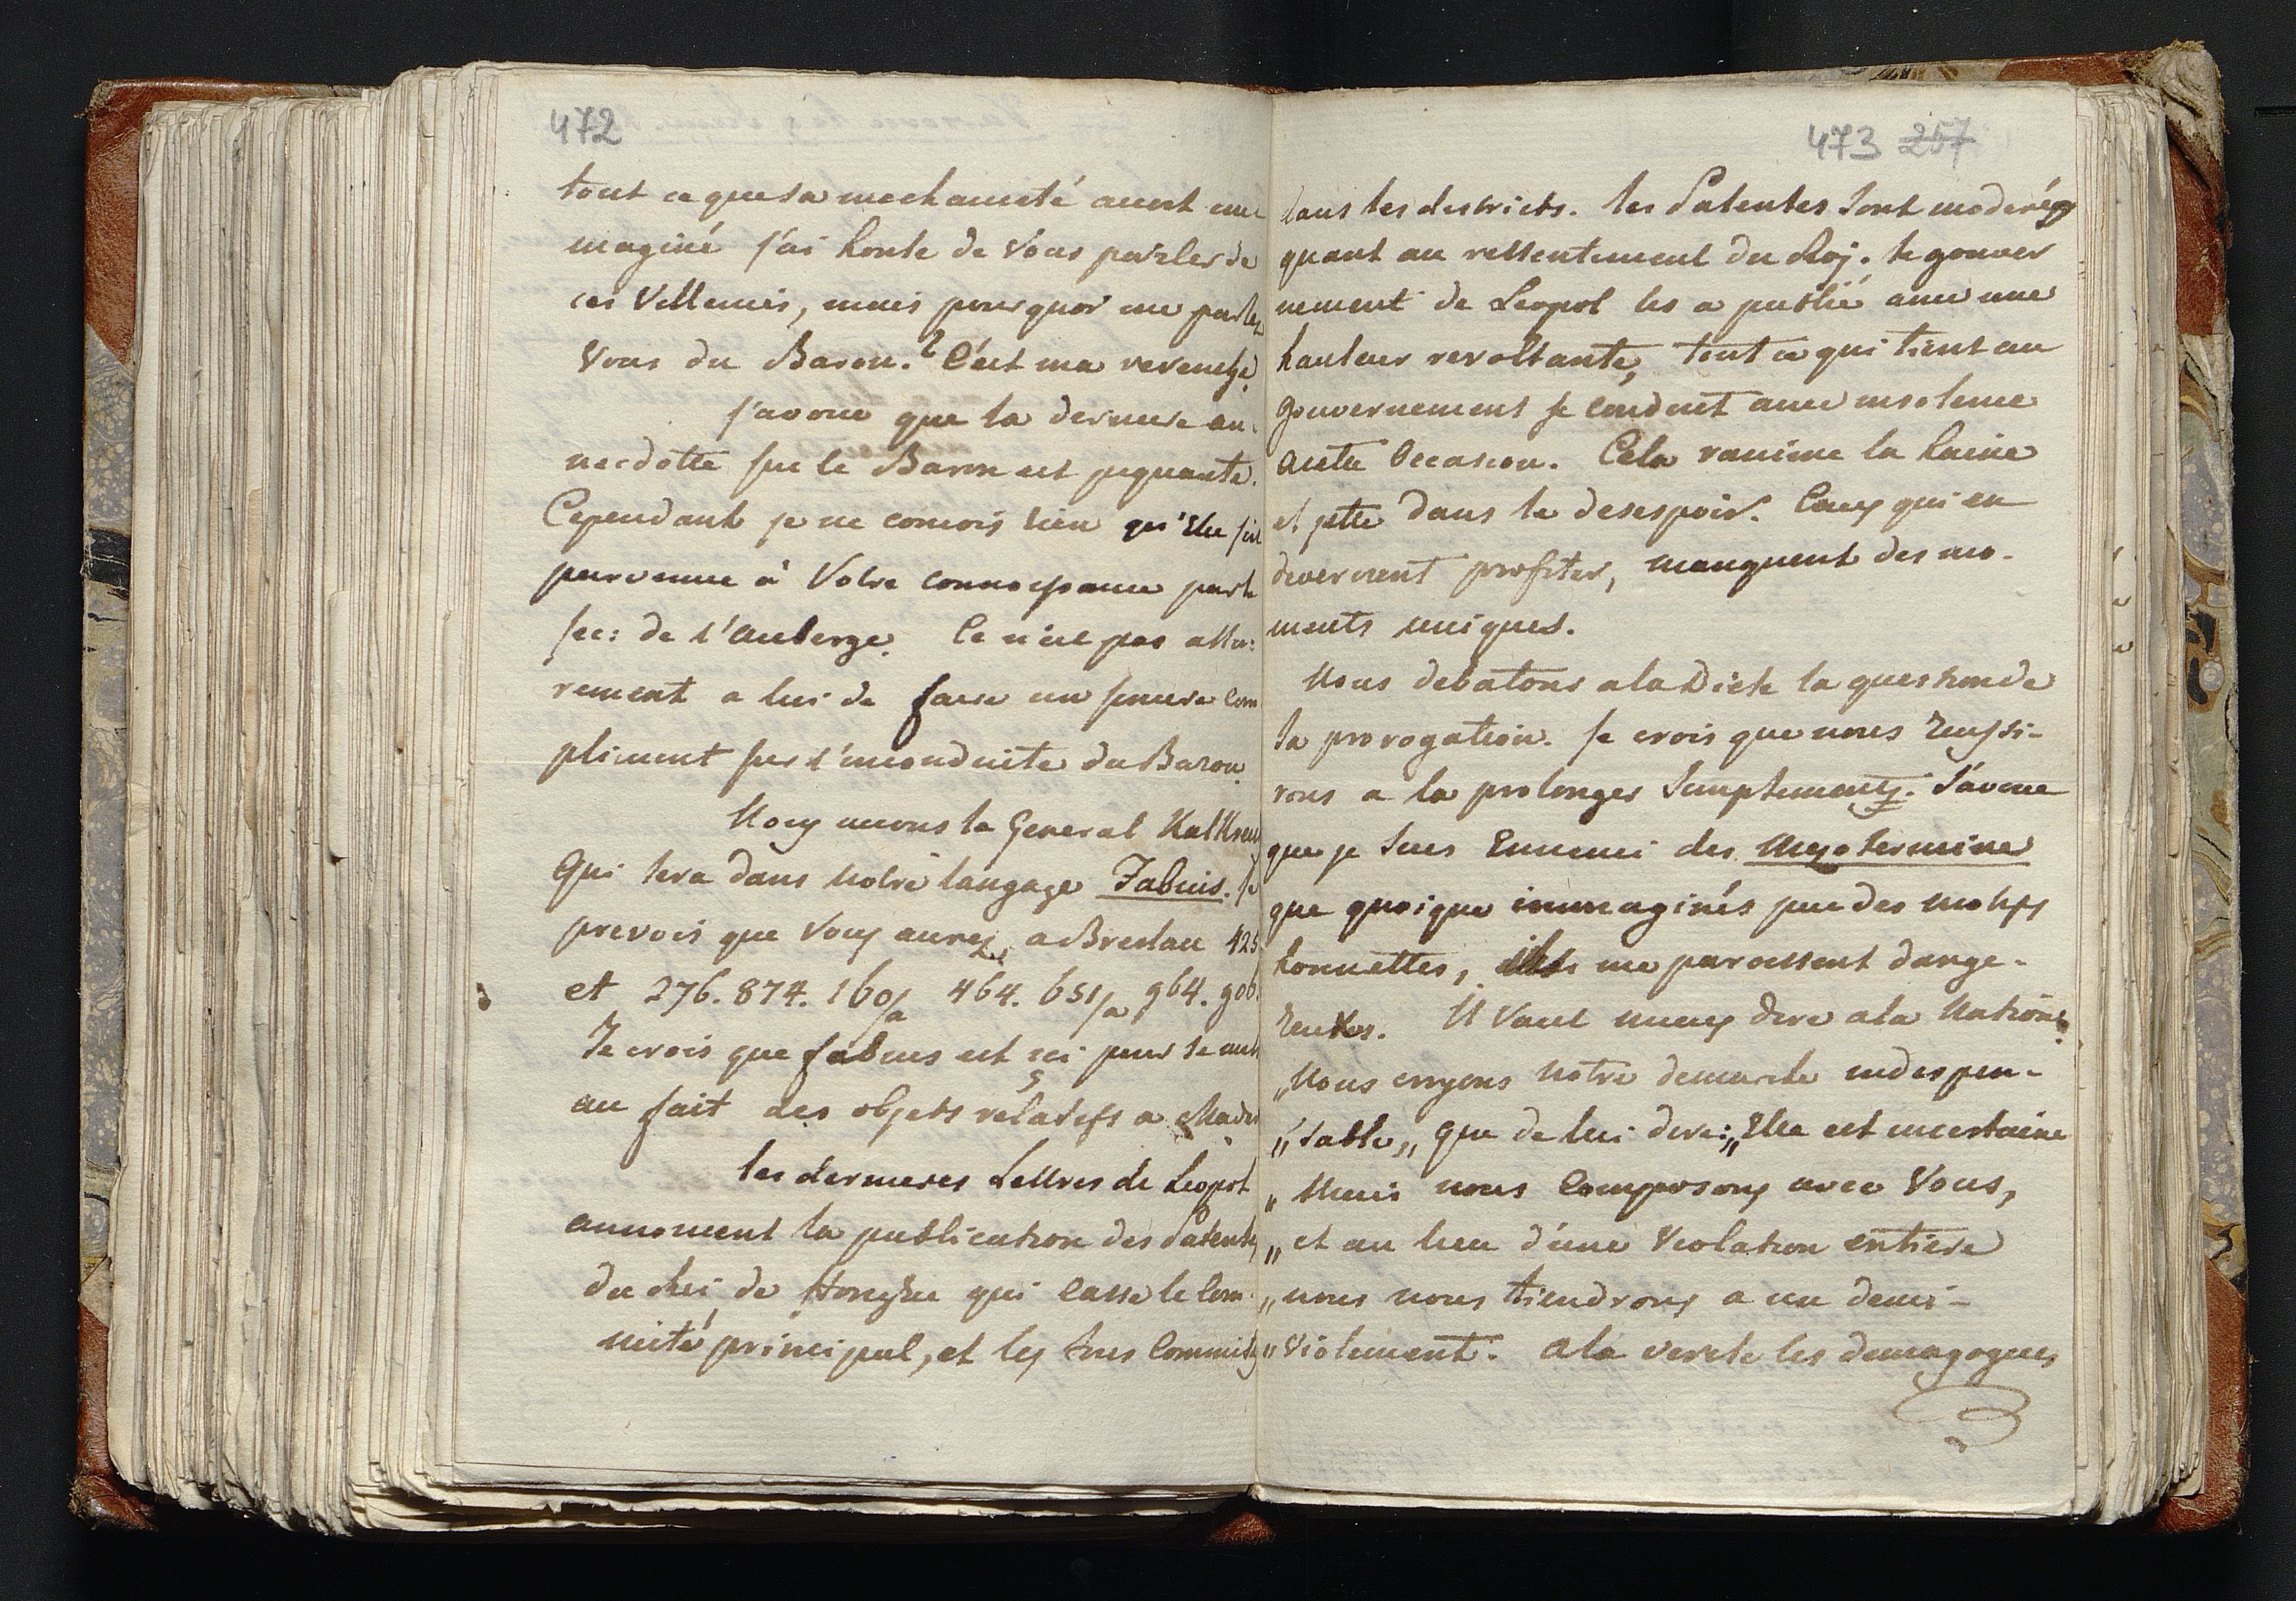 472
tout ce que sa mechanceté avoit im
maginé j'ai honte de Vous parler de
ces Villenies, mais pourquoi me parlez
Vous du Baron? C'est ma revenche.
J'avoue que la derniere an-
necdotte sur le Baron est piquante.
Cependant je ne connois rien qu'Elle soit
parvenue à Votre connoissance par le
sec: de l'Auberge. Ce n'est pas assu:
rement a lui de faire un sincere com
pliment sur l'inconduite du Baron.
Nous avons le General Kalkreu
Qui sera dans Notre langage Fabius. Je
prevois que Vous aurez a Breslau 425
et 276. 874. 160/a 464. 651/a 964. 906.
Je crois que fabius est ici pour se mettr
au fait des objets relatifs a
les dernieres Lettres de Leopol
annoncent la publication des Patentes
du Roi de Hongrie qui casse le Com-
mité principal, et les sous Commités
473 257
dans les districts. les Patentes sont moderées
quant au ressentiment du Roj. le gouver
nement de Leopol les a publié avec une
hauteur revoltante, tout ce qui tient au
Gouvernement se conduit avec insolence
a cette Occasion. Cela ranime la haine
et jette dans le desespoir. Ceux qui en
deveroient profiter, manquent des mo-
ments uniques.
Nous debatons a la Diete la question de
la prorogation. Je crois que nous reussi-
rons a la prolonger simplement. J'avoue
que je suis Ennemi des Mezo termine
que quoique immaginés par des motifs
honnettes, ils me paroissent dange-
reuxes. Il Vaut mieux dire a la Nation:
„Nous croyons Notre demarche indispen-
„sable„ que de lui dire: „Elle est incertaine
„Mais nous Composons avec Vous,
„et au lieu d'une Violation entiere
„nous nous tiendrons a un demi-
„Violement. A la verité les demagogues